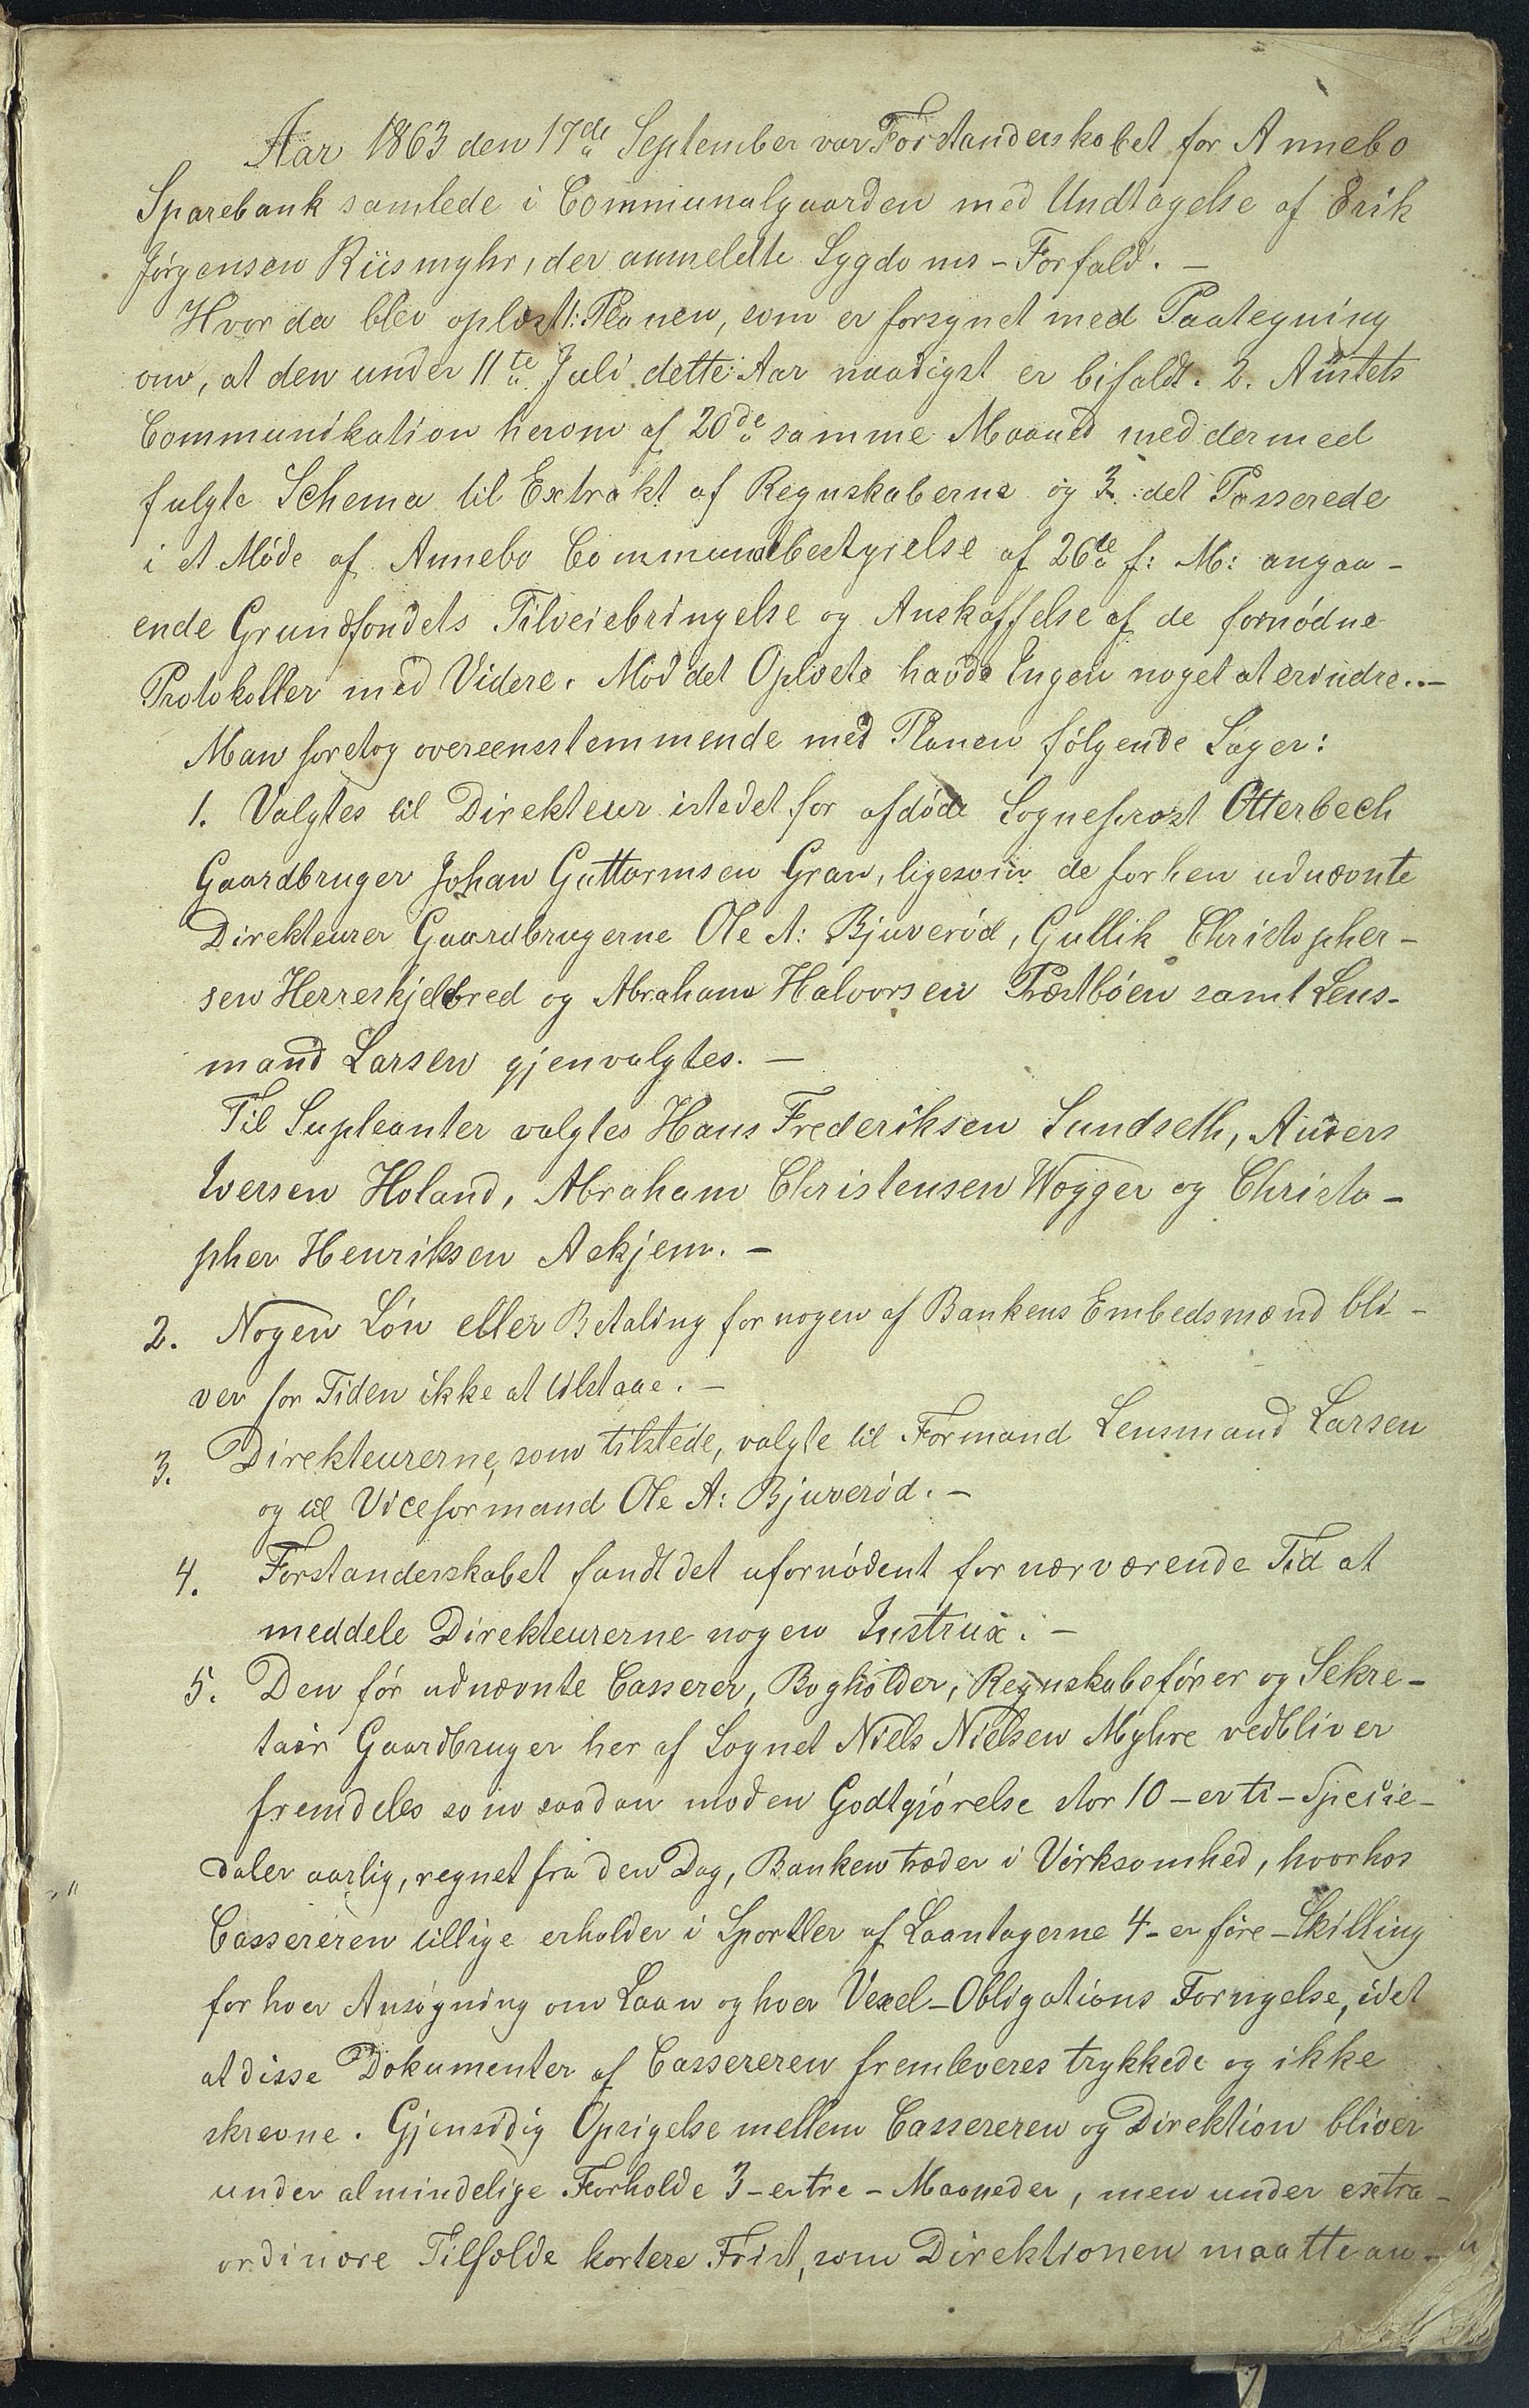 Aar 1863 den 17de September var Forstanderskabet for Annebo
Sparebank samlede i Communalgaarden med Undtagelse af Erik
Jörgensen Riismyhr, der anmeldte Sygdoms-Forfald. –
Hvor da blev oplæst 1: Planen, som er forsynet med Paategning
om, at den under 11te Juli dette Aar naadigst er bifaldt. 2. Amtets
Communikation herom af 20de samme Maaned med dermed
fulgte Schema til Extrakt af Regnskaberne og 3. det Passerede
i et Möde af Annebo Communebestyrelse af 26de f: M: angaa-
ende Grundfondets Tilveiebringelse og Anskaffelse af de fornödne
Protokoller med Videre. Mod det Oplæste havde Ingen noget at erindre. –
Man foretog overeensstemmende med Planen fölgende Sager:
1. Valgtes til Direkteur istedet for afdöde Sogneprost Otterbech
Gaardbruger Johan Guttormsen Gran, ligesom de forhen udnævnte
Direkteurer Gaardbrugerne Ole A: Bjuveröd, Gullik Christopher-
sen Herreskjelbred og Abraham Halvorsen Præstböen samt Lens-
mand Larsen gjenvalgtes. –
Til Supleanter valgtes Hans Frederiksen Sundseth, Anders
Iversen Holand, Abraham Christensen Wogger og Christo-
pher Henriksen Askjem. –
2. Nogen Lön eller Betaling for nogen af Bankens Embedsmænd bli-
ver for Tiden ikke at tilstaae. –
3. Direkteurerne, som tilstede, valgte til Formand Lensmand Larsen
og til Viceformand Ole A: Bjuveröd. –
4. Forstanderskabet fandt det ufornödent for nærværende Tid at
meddele Direkteurerne nogen Instrux. –
5. Den för udnævnte Casserer, Bogholder, Regnskabsförer og Sekre-
tair Gaardbruger her af Sognet Niels Nielsen Myhre vedbliver
fremdeles som saadan mod en Godtgjörelse stor 10 – er ti – Specie-
daler aarlig, regnet fra den Dag, Banken træder i Virksomhed, hvorhos
Cassereren tillige erholder i Sportler af Laantagerne 4 – er fire – Skilling
for hver Ansögning om Laan og hver Vexel-Obligations Fornyelse, idet
at disse Dokumenter af Cassereren fremleveres trykkede og ikke
skrevne. Gjensidig Opsigelse mellem Cassereren og Direktion bliver
under almindelige Forholde 3 – er tre – Maaneder, men under extra-
ordinære Tilfælde kortere Frist, som Direktionen maatte an-